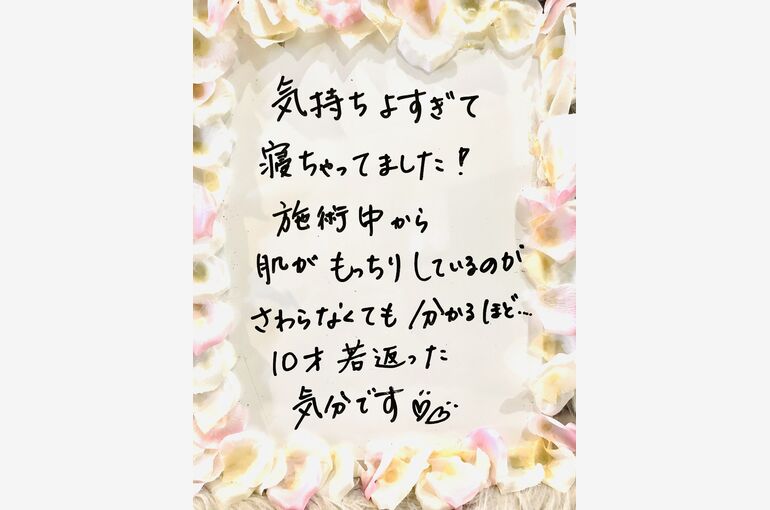 気持ちよすぎて
寝ちゃってました!
施術中から
肌がもっちりしているのが
さわらなくても分かるほど…
10才若返った
気分です♡♡